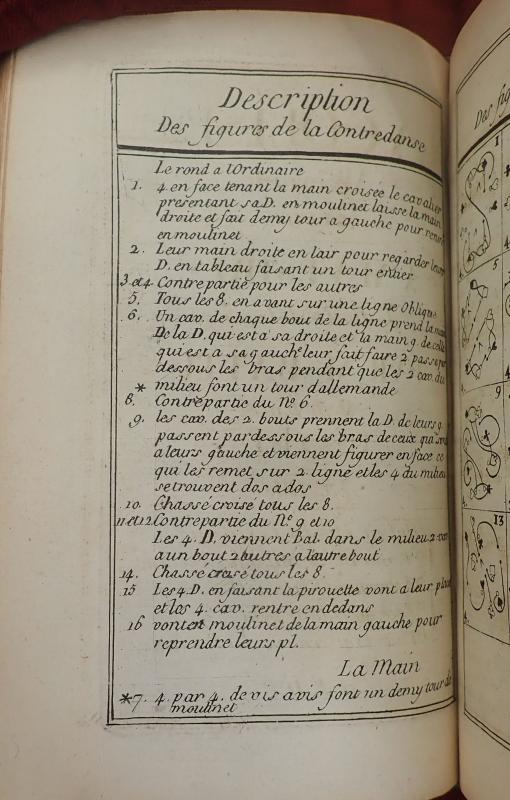 Description
Des figures de la Contredanse
Le rond a l'Ordinaire
1. 4. en face tenant la main croisée le cavalier
présentant sa D. en moulinet laisse la main
droite et fait demy tour a gauche pour
en moulinet
2. Leur main droite en lair pour regarder leur
D. en tableau faisant un tour entier
3. et 4. Contrepartie pour les autres
5. Tous les 8. en avant sur une ligne Oblique
6. Un cav. de chaque bout de la ligne prend la
De la D. qui est a sa droite et la main g. de celle
qui est a sa gauche leur fait faire 2 pas
dessous les bras pendant que les 2 cav. du
* milieu font un tour d'allemande
8. Contrepartie du Nº. 6.
9. les cav. des 2. bouts prennent la D. de leurs g.
passent par dessous les bras de ceux qui
a leurs gauche et viennent figurer en face ce
qui les remet sur 2 ligne et les 4 du milieu
se trouvent dos a dos
10. Chassé croisé tous les 8.
11 et 12. Contrepartie du Nº. 9 et 10
Les 4. D. viennent Bal. dans le milieu 2
a un bout 2 autres a lautre bout
14. Chassé croisé tous les 8.
15 Les 4. D. en faisant la pirouette vont a leur
et les 4. cav. rentre en dedans
16 vont en moulinet de la main gauche pour
reprendre leurs pl.
La Main
*7. 4. par 4. de vis avis font un demy tour de
moulinet
1
5
9
13